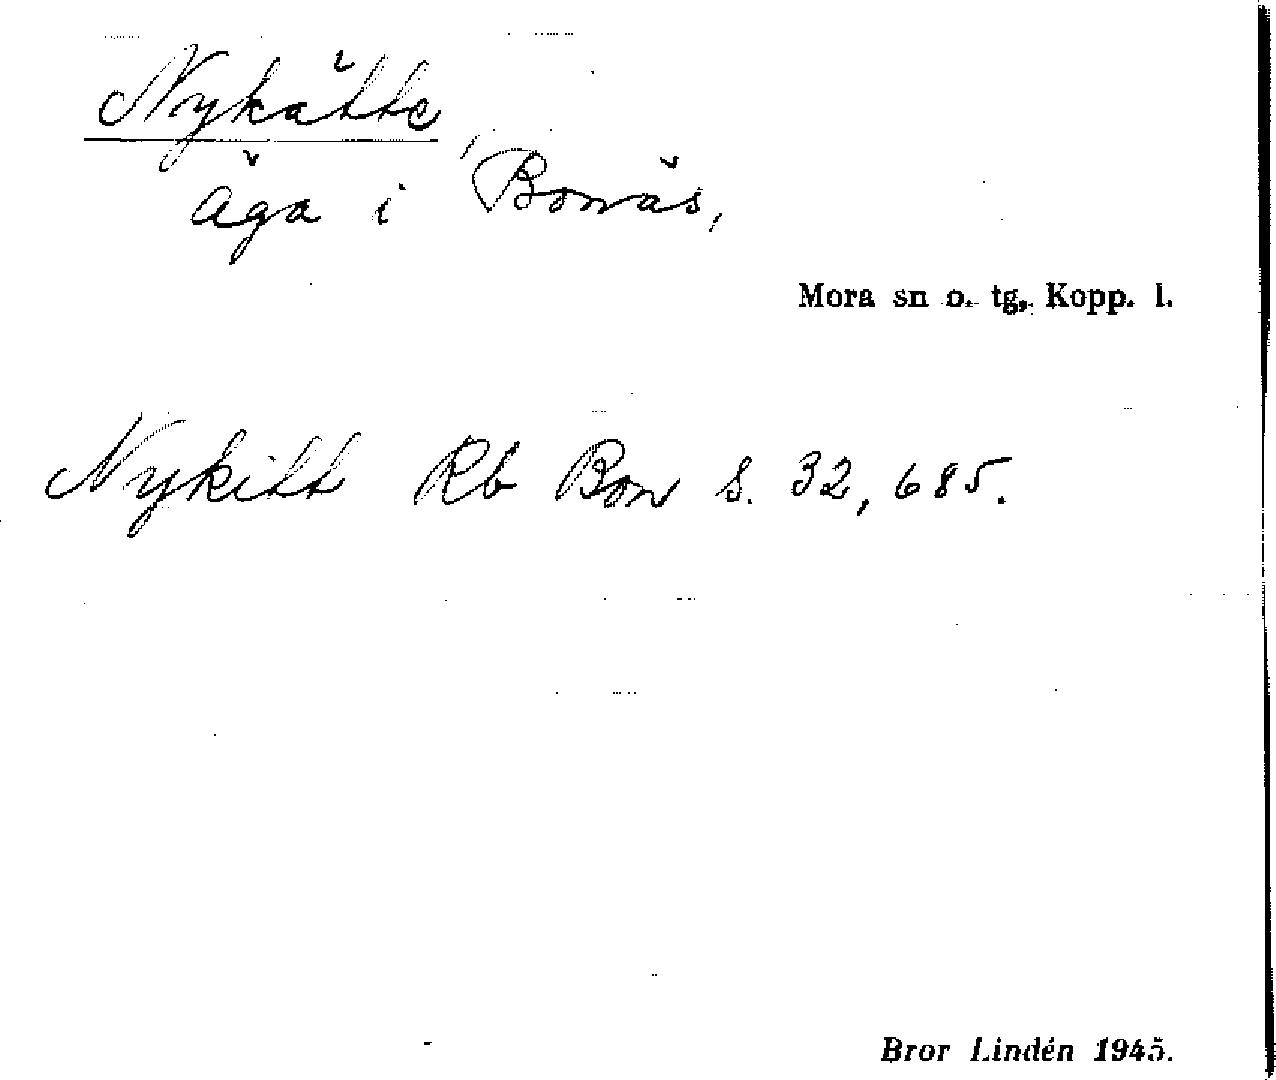 Nykätte,
äga i Bonäs,
Mora sn o. tg, Kopp. l.
Nykitt Rb Bon s. 32, 685.
Bror Lindén 1945.